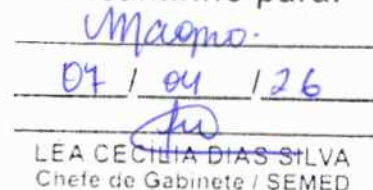 para:
Magno.
07 / 04 / 26
LEA CECILIA DIAS SILVA
Chefe de Gabinete / SEMED